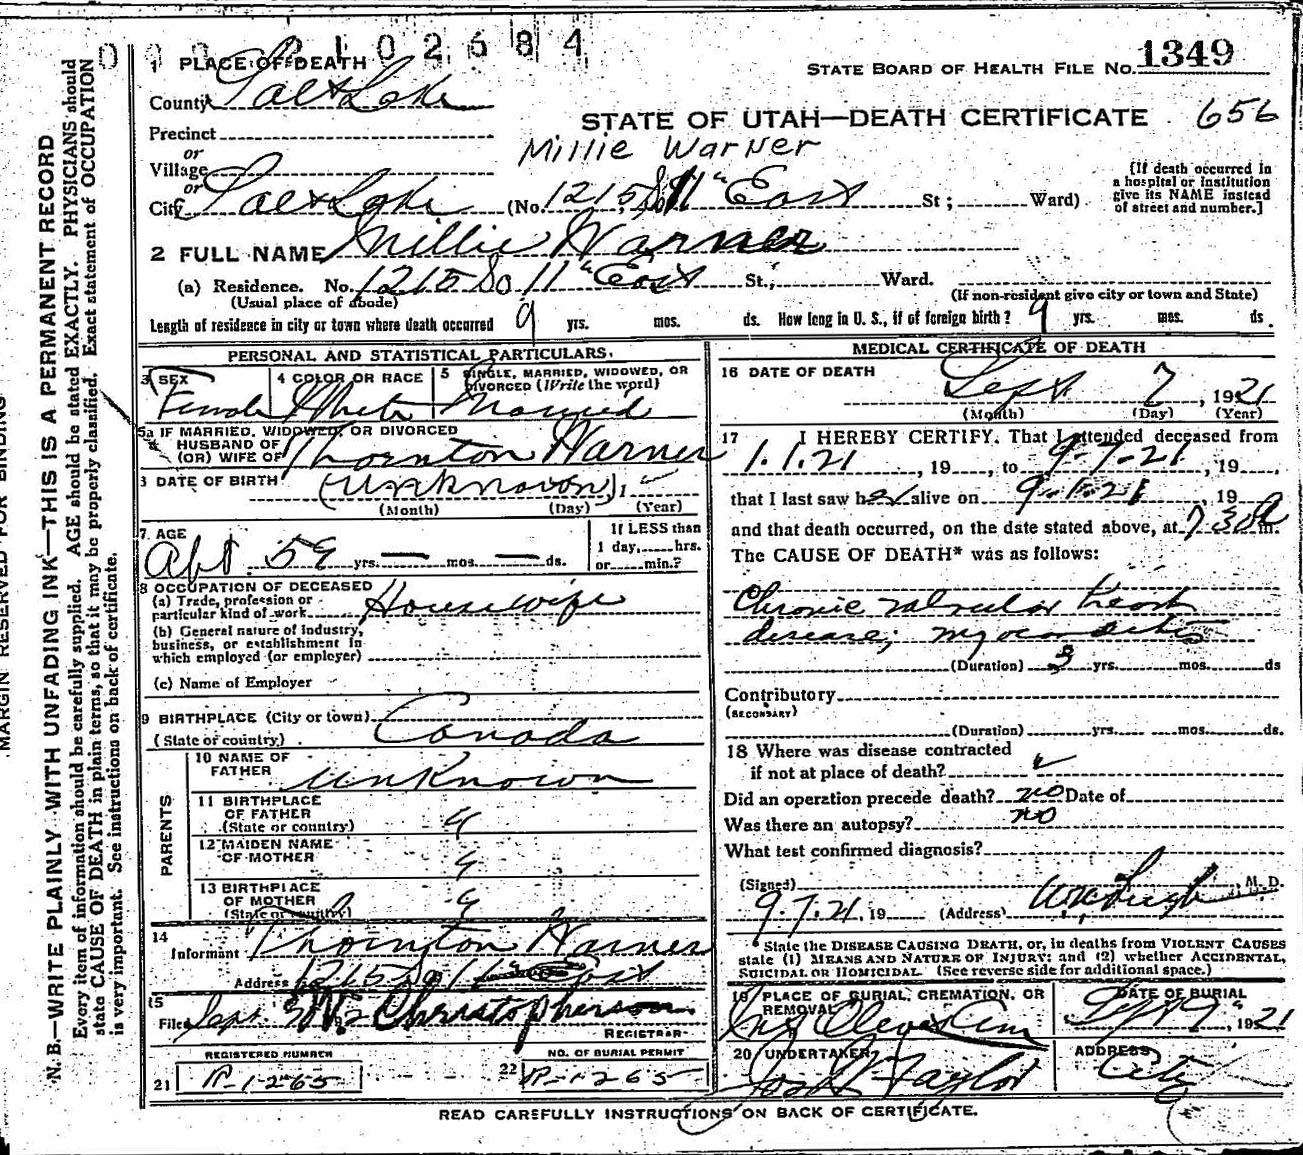 0 0 0 2 1 0 2 6 8 4
1 PLACE OF DEATH
STATE BOARD OF HEALTH FILE No. 1349
County Salt Lake
STATE OF UTAH—DEATH CERTIFICATE 656
Precinct
or
Millie Warner
Village
or
City Salt Lake (No. 1215 So 11" East St; Ward)
{If death occurred in
a hospital or institution
give its NAME instead
of street and number.]
2 FULL NAME Millie Warner
(a) Residence. No. 1215 So 11" East St; Ward.
(Usual place of abode) (If non-resident give city or town and State)
Length of residence in city or town where death occurred 9 yrs. mos. ds. How long in U. S., if of foreign birth? 9 yrs. mos. ds.
PERSONAL AND STATISTICAL PARTICULARS.
3 SEX Female
4 COLOR OR RACE White
5 SINGLE, MARRIED, WIDOWED, OR
DIVORCED (Write the word)
Married
5a IF MARRIED, WIDOWED, OR DIVORCED
HUSBAND OF
(OR) WIFE OF Thornton Warner
DATE OF BIRTH (Unknown)
(Month) (Day) (Year)
7. AGE
Abt. 59 yrs. — mos. — ds.
If LESS than
1 day, hrs.
or min.?
8 OCCUPATION OF DECEASED
(a) Trade, profession or
particular kind of work Housewife
(b) General nature of industry,
business, or establishment in
which employed (or employer)
(c) Name of Employer
9 BIRTHPLACE (City or town)
(State or country) Canada
PARENTS
10 NAME OF
FATHER Unknown
11 BIRTHPLACE
OF FATHER
(State or country)
12 MAIDEN NAME
OF MOTHER
13 BIRTHPLACE
OF MOTHER
(State or country)
14
Informant Thornton Warner
Address 1215 So 11" East
15
Filed Sept. Christopherson
REGISTRAR
REGISTERED NUMBER
21 R-1265
NO. OF BURIAL PERMIT
22 R-1265
MEDICAL CERTIFICATE OF DEATH
16 DATE OF DEATH
Sept. 7, 1921
(Month) (Day) (Year)
17 I HEREBY CERTIFY. That I attended deceased from
1.1.21, 19, to 9-7-21, 19,
that I last saw her alive on 9-1-21, 19
and that death occurred, on the date stated above, at 730A m.
The CAUSE OF DEATH* was as follows:
Chronic valvular heart
disease; myocarditis
(Duration) 3 yrs. mos. ds
Contributory
(SECONDARY)
(Duration) yrs. mos. ds.
18 Where was disease contracted
if not at place of death?
Did an operation precede death? no Date of
Was there an autopsy? no
What test confirmed diagnosis?
(Signed) M. D.
9.7.21, 19 (Address)
*State the DISEASE CAUSING DEATH, or, in deaths from VIOLENT CAUSES
state (1) MEANS AND NATURE OF INJURY; and (2) whether ACCIDENTAL,
SUICIDAL OR HOMICIDAL. (See reverse side for additional space.)
19 PLACE OF BURIAL, CREMATION, OR
REMOVAL
DATE OF BURIAL
Sept 1921
20 UNDERTAKER
Taylor
ADDRESS
City
READ CAREFULLY INSTRUCTIONS ON BACK OF CERTIFICATE.
MARGIN RESERVED FOR BINDING
N. B.—WRITE PLAINLY WITH UNFADING INK—THIS IS A PERMANENT RECORD
Every item of information should be carefully supplied. AGE should be stated EXACTLY. PHYSICIANS should
state CAUSE OF DEATH in plain terms, so that it may be properly classified. Exact statement of OCCUPATION
is very important. See instructions on back of certificate.